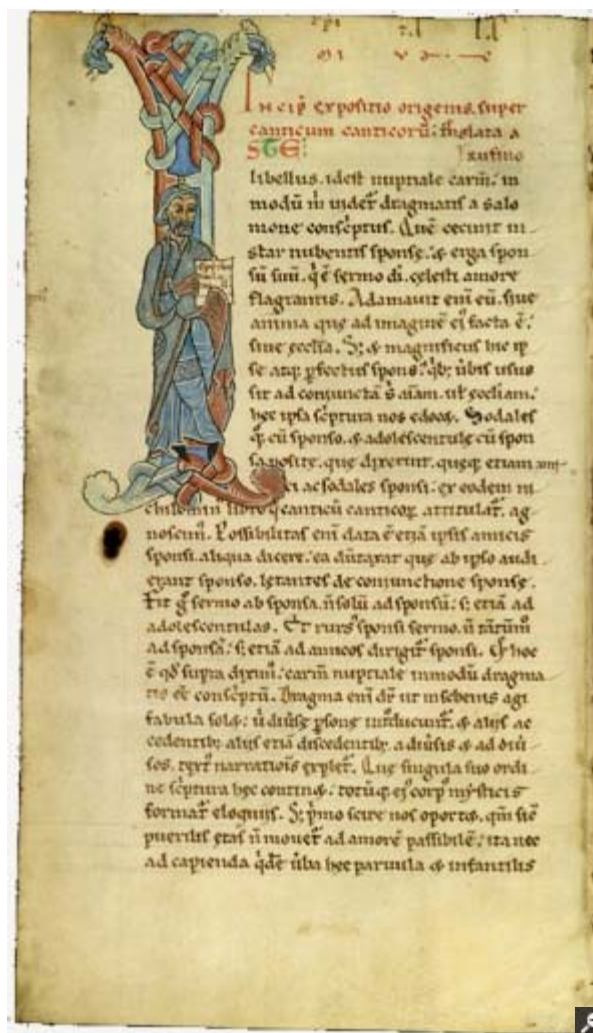 Incip̄ expositio origenis. super
canticum canticorū; t̄nslata a
STE rufino
libellus. idest nuptiale carm̄. in
modū m̄ videt᷑ dragmatis a salo
mone conscͥptus. Quē cecinit in
star nubentis sponsę. & erga spon
sū suū. q̇ ē sermo dī. cęlesti amore
flagrantis. Adamauit eni eū. siue
anima que ad imaginē ei᷒ facta ē.
siue ecclīa. Sꝫ & magnificus hic ip
se atqꝫ ꝑfectus spons᷒. qͥbꝫ ūbis usus
sit ad coniunctā sͥ aīam. ut ęccliam.
hęc ipsa scͥptura nos edocꝫ. Sodales
qꝫ cū sponso. & adolescentule cū spon
sa posite. que dixerint. queqꝫ etiam
ac sodales sponsi. ex eodem ni
chilomin libro canticū canticoꝝ attitulat᷑. ag
noscim᷒. Possibilitas eni data ē etiā ipsis amicis
sponsi. aliqua dicere. ea dūtaxat que ab ipso audi
erant sponso. lętantes de coniunctione sponsę.
Fit gͦ sermo ab sponsa. n̄ solū ad sponsū. sꝫ etiā ad
adolescentulas. Et rurs᷒ sponsi sermo. n̄ tātūm̄
ad sponsā. sꝫ etiā ad amicos dirigit᷑ sponsi. Et hoc
ē qd̄ supra dixim᷒. carm̄ nuptiale in modū dragma
tis eē conscͥptū. Dragma eni dr̄ ut in scenis agi
fabula solꝫ. ū diūsę ꝑsone int͛ducunt᷑. & aliis ac
cedentibꝫ aliis etiā discedentibꝫ. a diūsis & ad diū
sos. text᷒ narratiōis explet᷑. Que singula suo ordi
ne scͥptura hęc continꝫ. totūqꝫ ei᷒ corp᷒ mysticis
format᷑ eloquiis. Sꝫ pͥmo scire nos oportꝫ. qm̄ sic̄
puerilis ętas n̄ mouet᷑ ad amorē passibilē. ita nec
ad capienda qͥdē ūba hęc paruula & infantilis